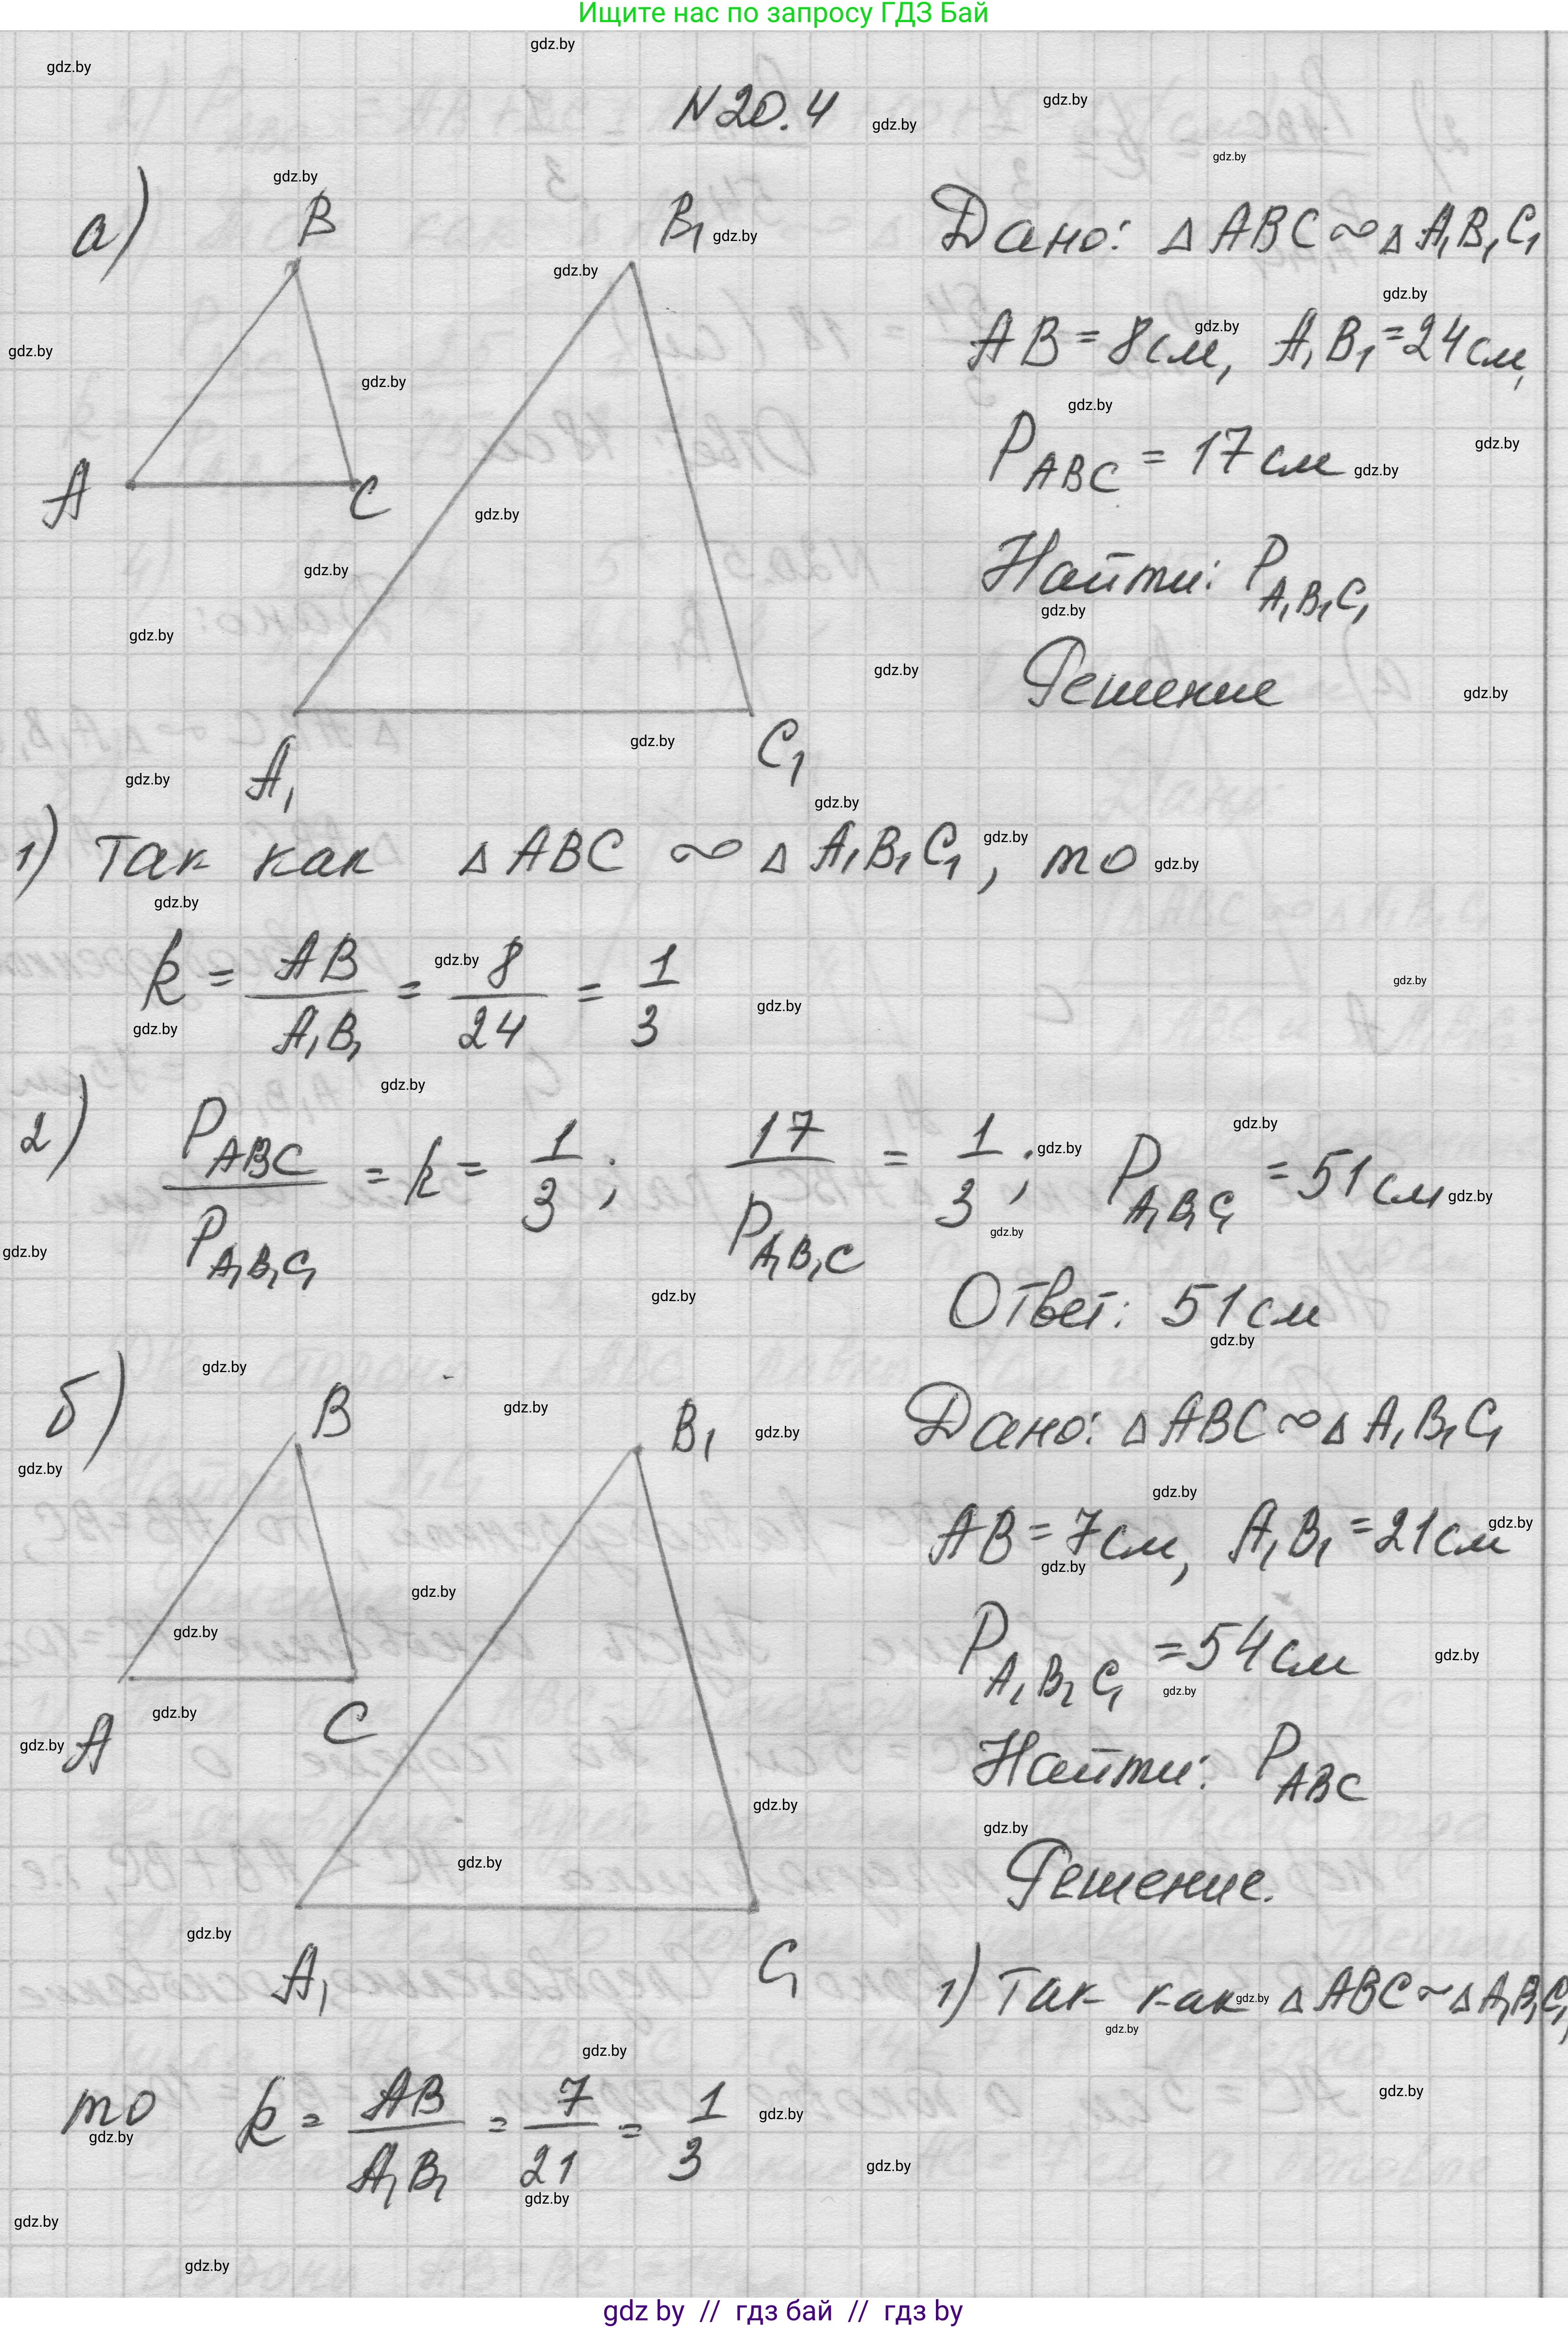 Ищите нас по запросу ГДЗ Бай
N20.4
а)
B
B₁
A
C
A₁
C₁
Дано: △ABC ∾ △A₁B₁C₁
AB = 8 см, A₁B₁ = 24 см,
P_ABC = 17 см
Найти: P_A₁B₁C₁
Решение
1) Так как △ABC ∾ △A₁B₁C₁, то
k = AB/A₁B₁ = 8/24 = 1/3
2) P_ABC/P_A₁B₁C₁ = k = 1/3; 17/P_A₁B₁C = 1/3; P_A₁B₁C₁ = 51 см
Ответ: 51 см
б)
B
B₁
A
C
A₁
C₁
Дано: △ABC ∾ △A₁B₁C₁
AB = 7 см, A₁B₁ = 21 см
P_A₁B₁C₁ = 54 см
Найти: P_ABC
Решение.
1) Так как △ABC ~ △A₁B₁C₁,
то k = AB/A₁B₁ = 7/21 = 1/3
gdz.by
gdz by // гдз бай // гдз by